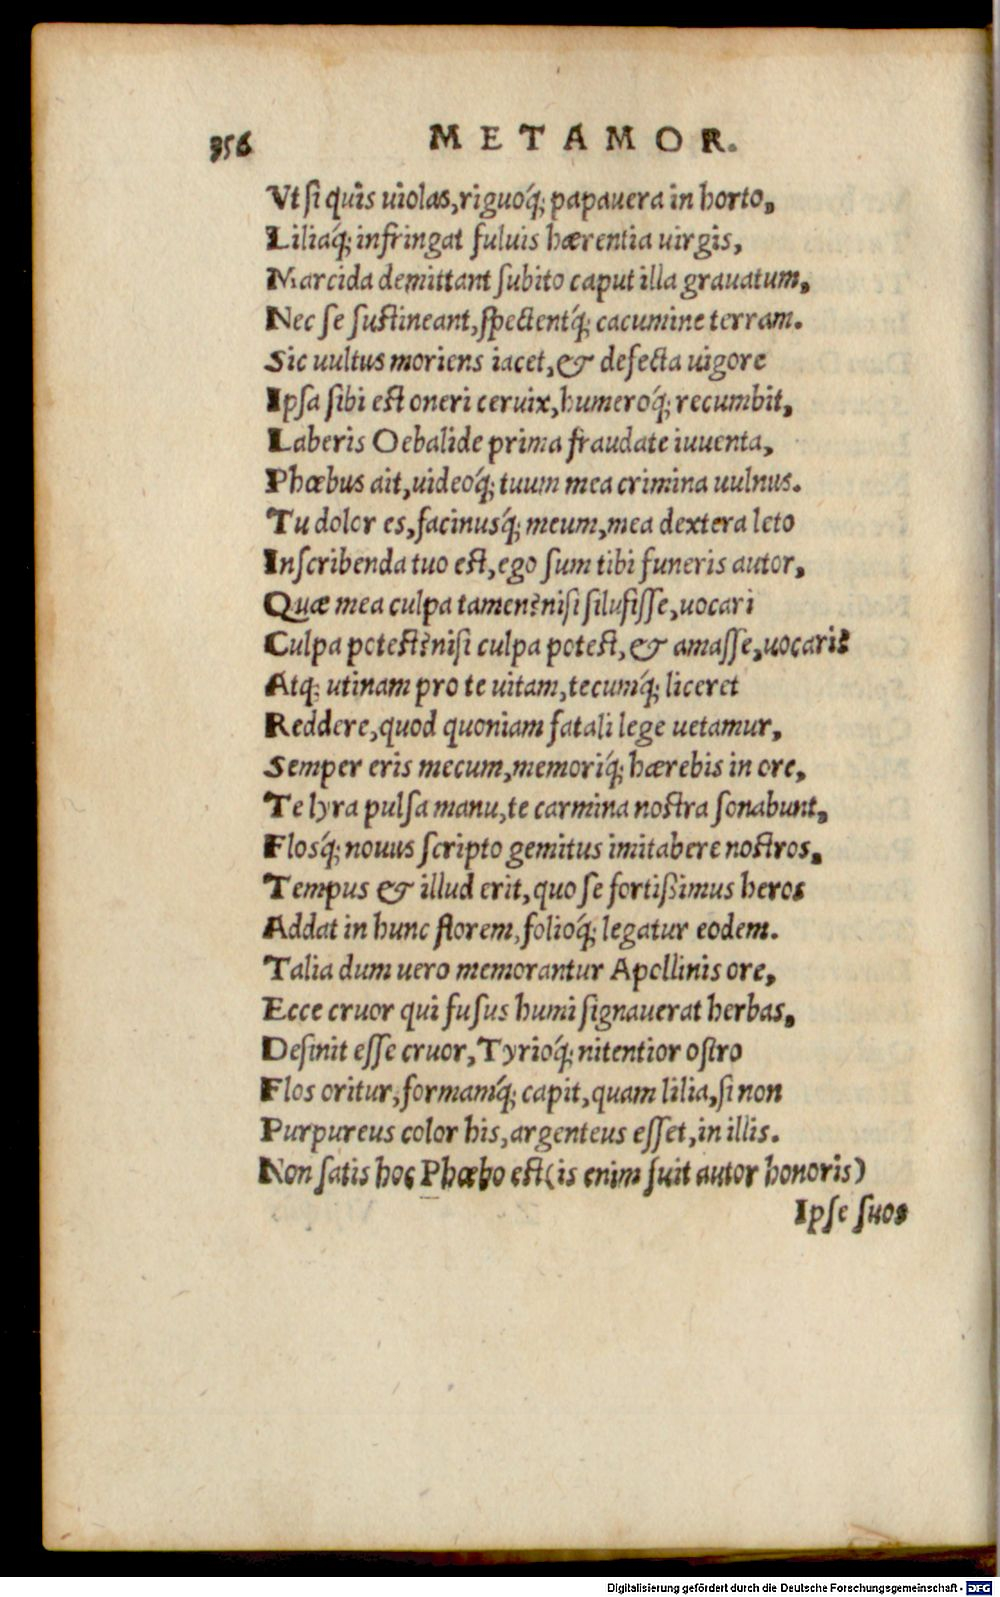 356 METAMOR.
Vt si quis uiolas, riguoq́; papauera in horto,
Liliaq́; infringat fuluis hærentia uirgis,
Marcida demittant subito caput illa grauatum,
Nec se sustineant, spectentq́; cacumine terram.
Sic uultus moriens iacet, & defecta uigore
Ipsa sibi est oneri ceruix, humeroq́; recumbit,
Laberis Oebalide prima fraudate iuuenta,
Phœbus ait, uideoq́; tuum mea crimina uulnus.
Tu dolor es, facinusq́; meum, mea dextera leto
Inscribenda tuo est, ego sum tibi funeris autor,
Quæ mea culpa tamen? nisi si lusisse, uocari
Culpa potest? nisi culpa potest, & amasse, uocari?
Atq; utinam pro te uitam, tecumq́; liceret
Reddere, quod quoniam fatali lege uetamur,
Semper eris mecum, memoriq́; hærebis in ore,
Te lyra pulsa manu, te carmina nostra sonabunt,
Flosq́; nouus scripto gemitus imitabere nostros,
Tempus & illud erit, quo se fortißimus heros
Addat in hunc florem, folioq́; legatur eodem.
Talia dum uero memorantur Apollinis ore,
Ecce cruor qui fusus humi signauerat herbas,
Desinit esse cruor, Tyrioq́; nitentior ostro
Flos oritur, formamq́; capit, quam lilia, si non
Purpureus color his, argenteus esset, in illis.
Non satis hoc Phœbo est (is enim fuit autor honoris)
Ipse suos
Digitalisierung gefördert durch die Deutsche Forschungsgemeinschaft - DFG